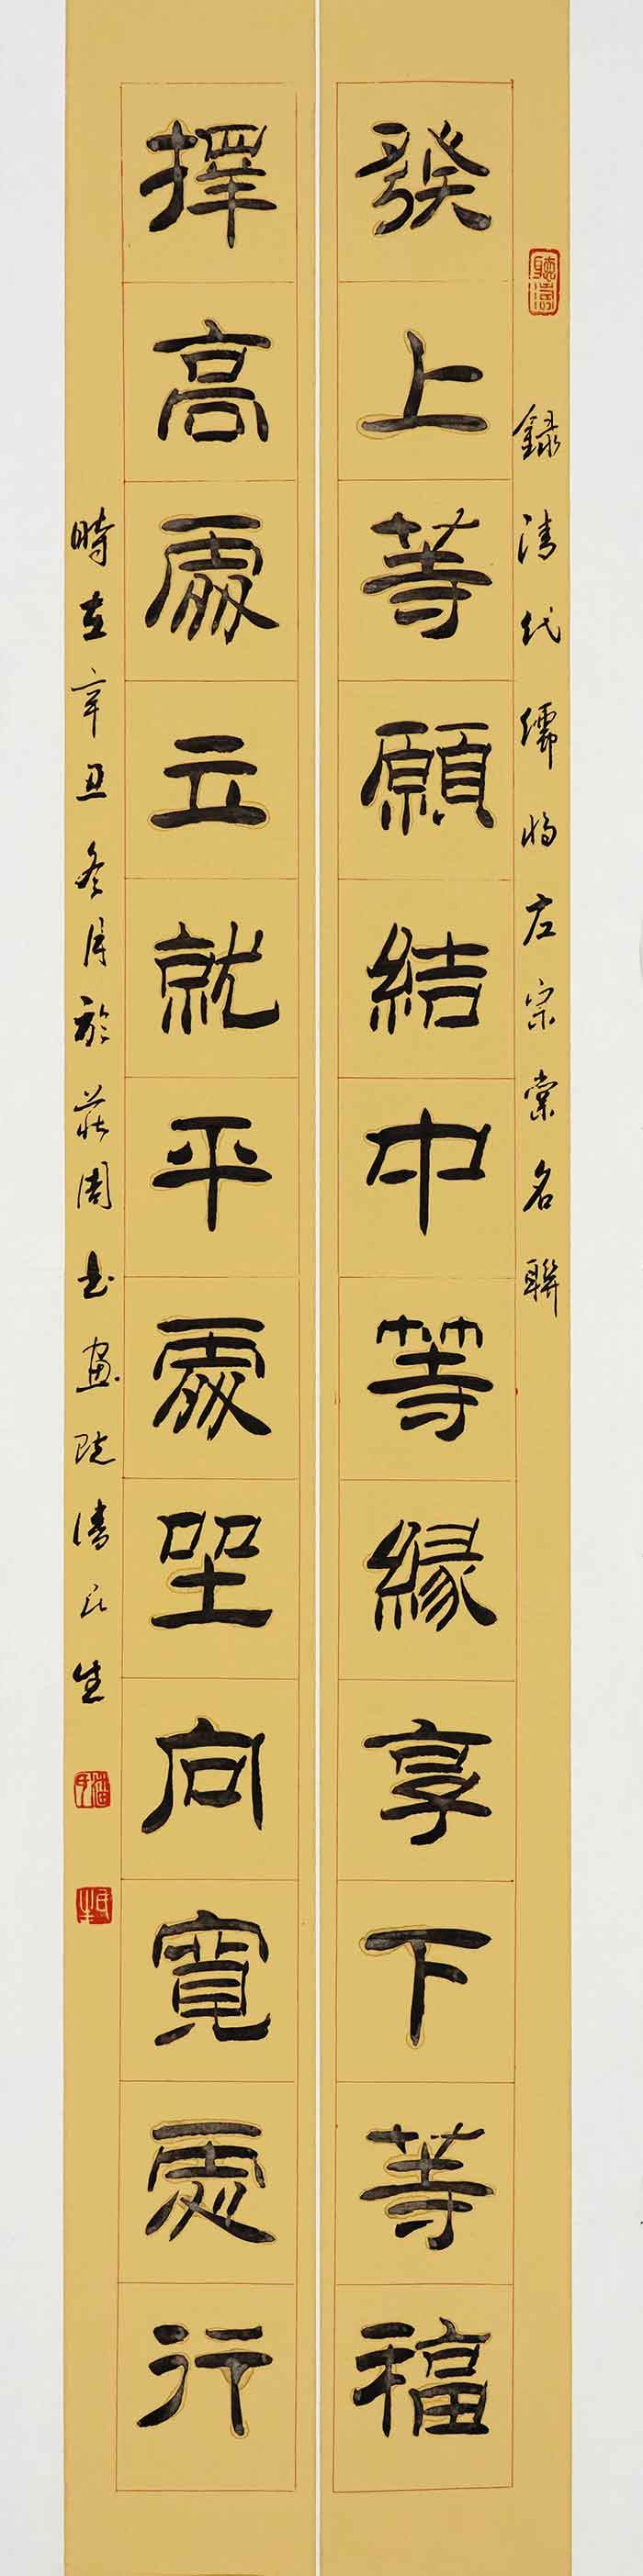 錄清代儒将左宗棠名聯
發上等願結中等緣享下等福
擇高處立就平處坐向寬處行
時在辛丑冬月於莊周书画院潘民生